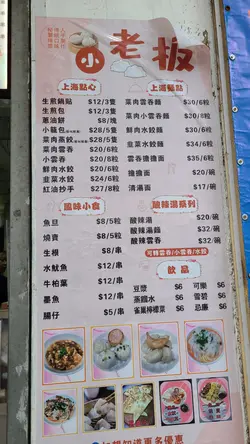 小老板
上海點心
生煎鍋貼 $12/3隻
生煎包 $12/3隻
蔥油餅 $8/塊
小籠包 $28/5隻
菜肉蒸餃 $28/5隻
菜肉雲吞 $20/6粒
小雲吞 $20/8粒
鮮肉水餃 $20/6粒
韮菜水餃 $24/6粒
紅油抄手 $24/8粒
上湯麵點
菜肉雲吞麵 $30/6粒
菜肉小雲吞麵
鮮肉水餃麵 $30/6粒
韮菜水餃麵 $34/6粒
雲吞擔擔麵 $35/6粒
擔擔麵 $20/碗
清湯麵 $17/碗
風味小食
魚旦 $8/5粒
燒賣 $8/5粒
生根 $8/串
水魷魚 $12/串
牛柏葉 $12/串
墨魚 $12/串
腸仔 $5/串
酸辣湯系列
酸辣湯 $20/碗
酸辣湯麵 $32/碗
酸辣雲吞 $32/碗
可轉雲吞/小雲吞/水餃
飲品
豆漿 $6
蒸餾水 $6
雀巢檸檬茶 $6
可樂 $6
雪碧 $6
忌廉 $6
想知道更多優惠